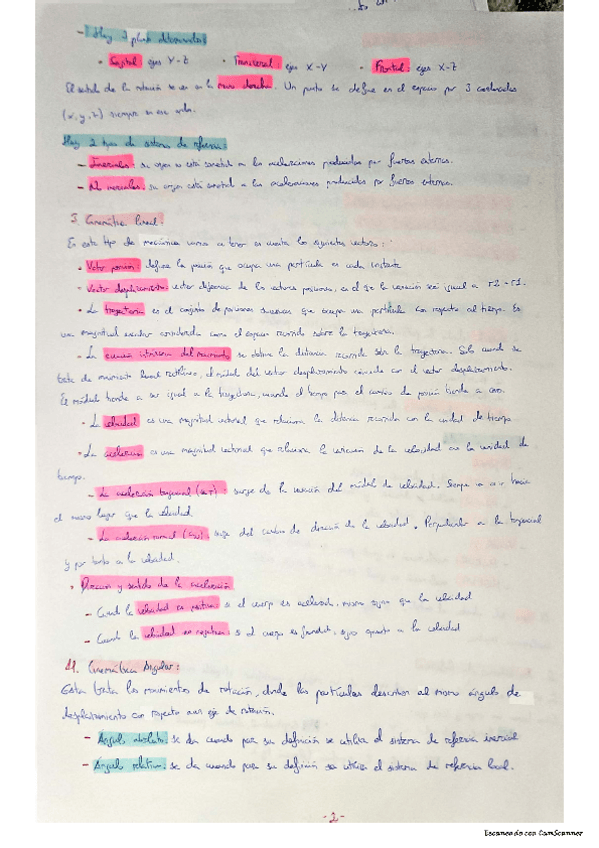 - Hay 3 planos determinados:
• Sagital: ejes Y-Z • Transversal: ejes X-Y • Frontal: ejes X-Z
El sentido de la rotación se ve con la mano derecha. Un punto se define en el espacio por 3 coordenadas
(x, y, z) siempre en ese orden.
Hay 2 tipos de sistema de referencia:
- Inerciales: su origen no está sometido a las aceleraciones producidas por fuerzas externas.
- No inerciales: su origen está sometido a las aceleraciones producidas por fuerzas externas.
Cinemática lineal.
En este tipo de mecánica vamos a tener en cuenta los siguientes vectores:
• Vector posición: define la posición que ocupa una partícula en cada instante
• Vector desplazamiento: vector diferencia de los vectores posiciones, en el que la variación será igual a r2 - r1.
• La trayectoria es el conjunto de posiciones sucesivas que ocupa una partícula con respecto al tiempo. Es
una magnitud escalar considerada como el espacio recorrido sobre la trayectoria.
• La ecuación intrínseca del movimiento se define la distancia recorrida sobre la trayectoria. Solo cuando se
trata de movimiento lineal rectilíneo, el módulo del vector desplazamiento coincide con el vector desplazamiento.
El módulo tiende a ser igual a la trayectoria, cuando el tiempo para el cambio de posición tiende a cero.
• La velocidad es una magnitud vectorial que relaciona la distancia recorrida con la unidad de tiempo
• La aceleración es una magnitud vectorial que relaciona la variación de la velocidad con la unidad de
tiempo.
- La aceleración tangencial: surge de la variación del módulo de velocidad. Siempre va a ir hacia
el mismo lugar que la velocidad
- La aceleración normal: surge del cambio de dirección de la velocidad. Perpendicular a la tangencial
y por tanto a la velocidad.
• Dirección y sentido de la aceleración
- Cuando la velocidad es positiva si el cuerpo es acelerado, mismo signo que la velocidad
- Cuando la velocidad es negativa si el cuerpo es frenado, signo opuesto a la velocidad
Cinemática Angular:
Esta trata los movimientos de rotación, donde las partículas describen el mismo ángulo de
desplazamiento con respecto a un eje de rotación.
- Ángulo absoluto: se da cuando para su definición se utiliza el sistema de referencia inercial
- Ángulo relativo: se da cuando para su definición se utiliza el sistema de referencia local.
-2-
Escaneado con CamScanner